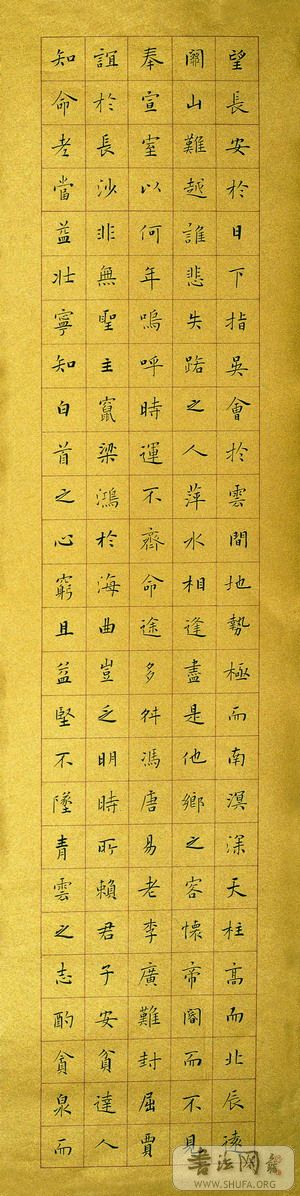 望長安於日下指吳會於雲間地勢極而南溟深天柱高而北辰遠
關山難越誰悲失路之人萍水相逢盡是他鄉之客懷帝閽而不見
奉宣室以何年嗚呼時運不齊命途多舛馮唐易老李廣難封屈賈
誼於長沙非無聖主竄梁鴻於海曲豈乏明時所賴君子安貧達人
知命老當益壯寧知白首之心窮且益堅不墜青雲之志酌貪泉而
书法网
WWW.SHUFA.ORG